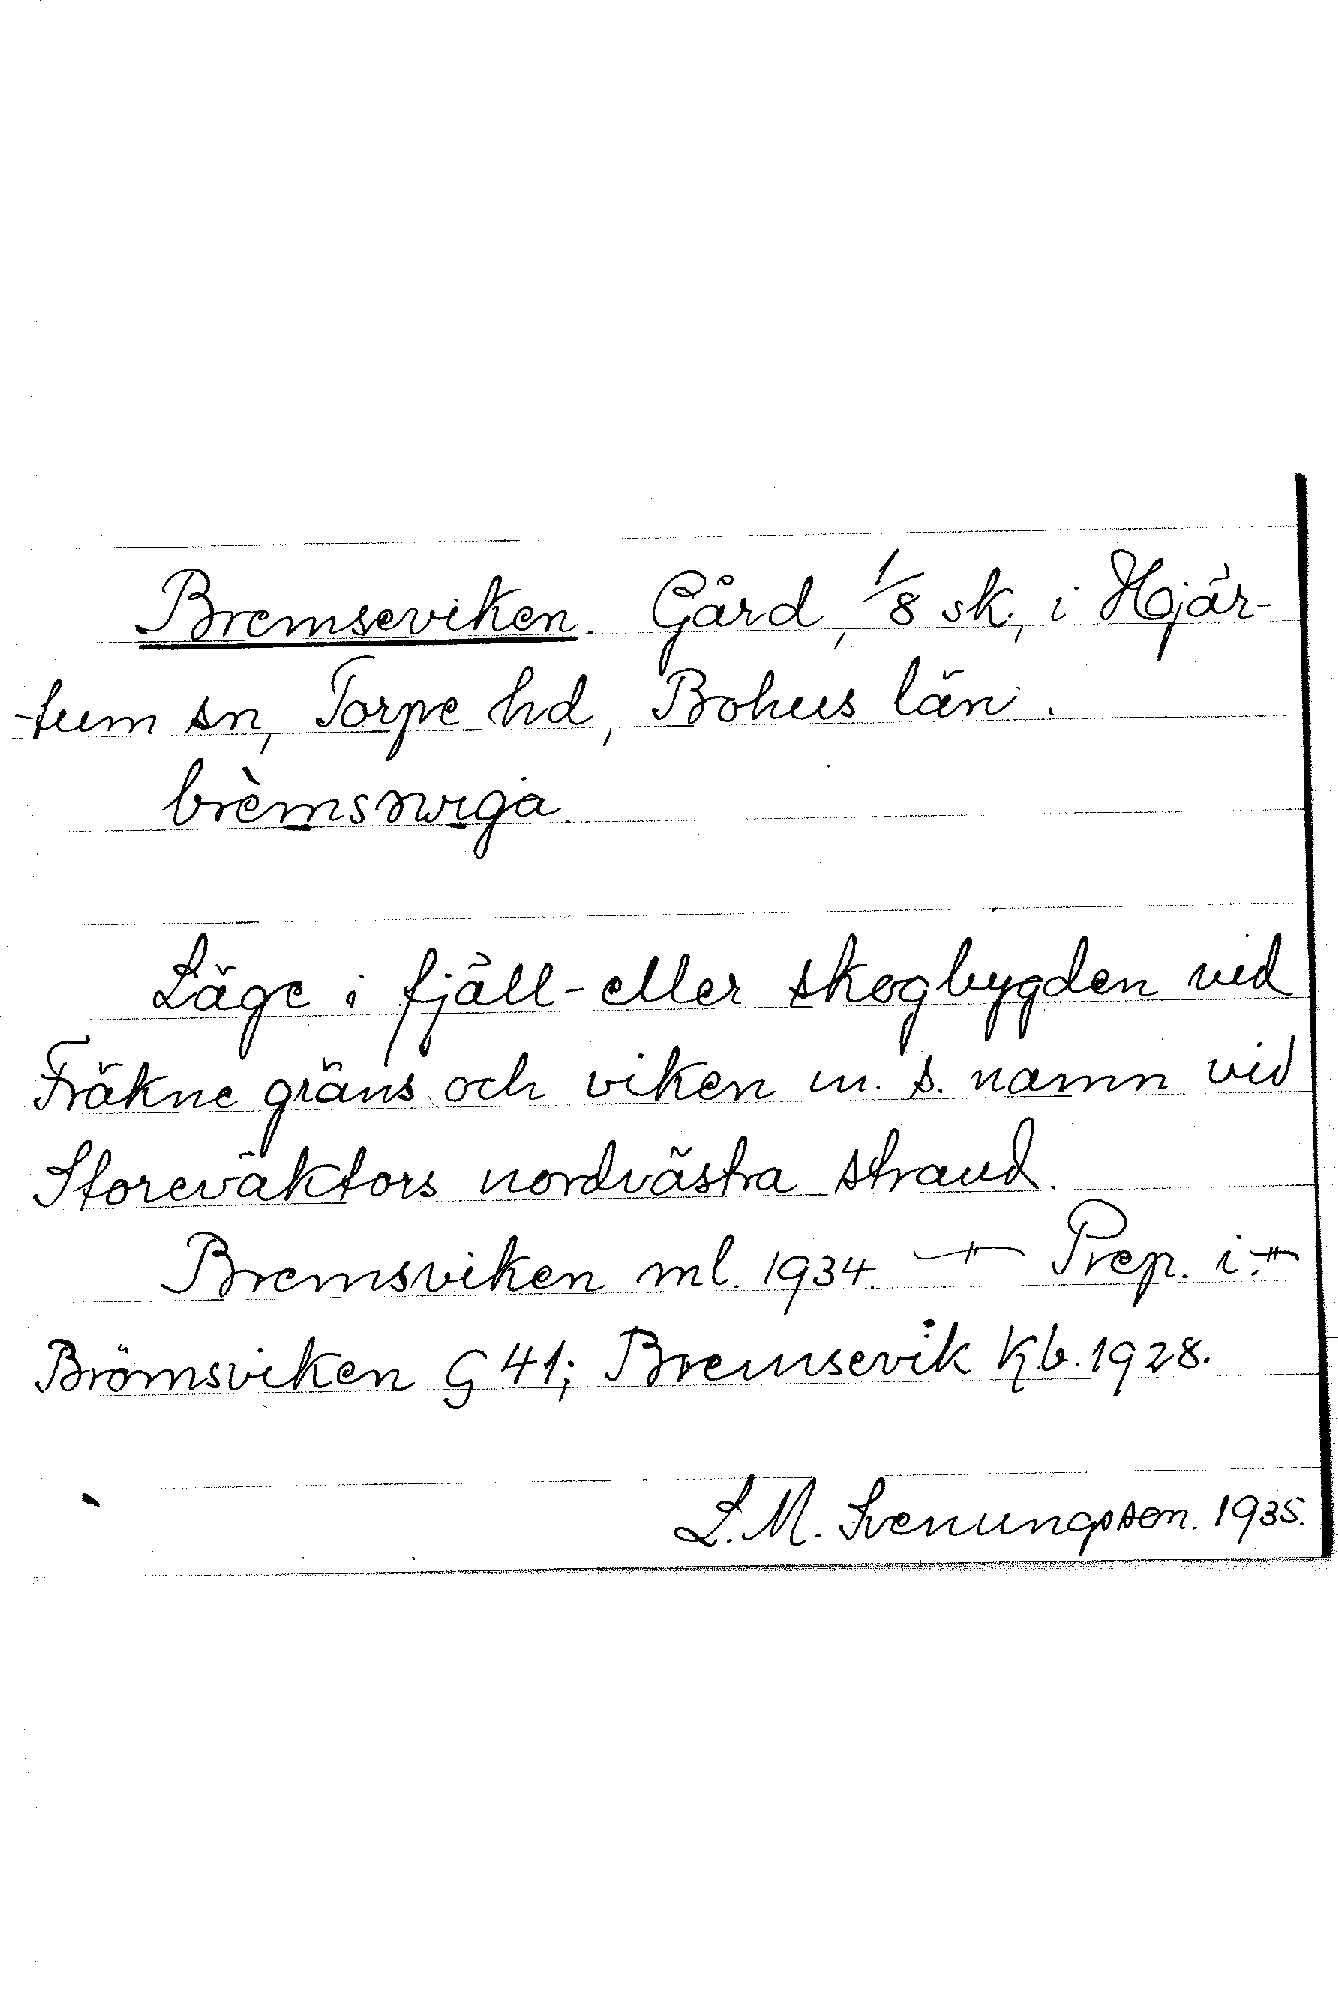 Bremseviken. Gård, 1/8 sk., i Hjär-
-tum sn, Torpe hd, Bohus län.
Läge i fjäll- eller skogbygden vid
Fräkne gräns och viken m. s. namn vid
Storeväktors nordvästra strand.
Bremsviken ml. 1934. — Prep. i. —
Brömsviken G 41; Bremsevik Kb. 1928.
L. M. Svenungsson. 1935.